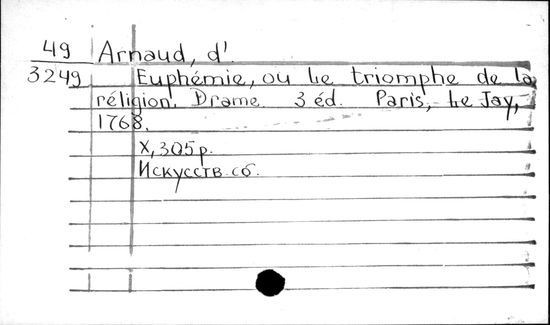 49 Arnaud, d'
3249 Euphémie, ou le triomphe de la
réligion. Drame 3 éd. Paris, Le Jay,
1768.
X, 305 p.
Искусств. сб.